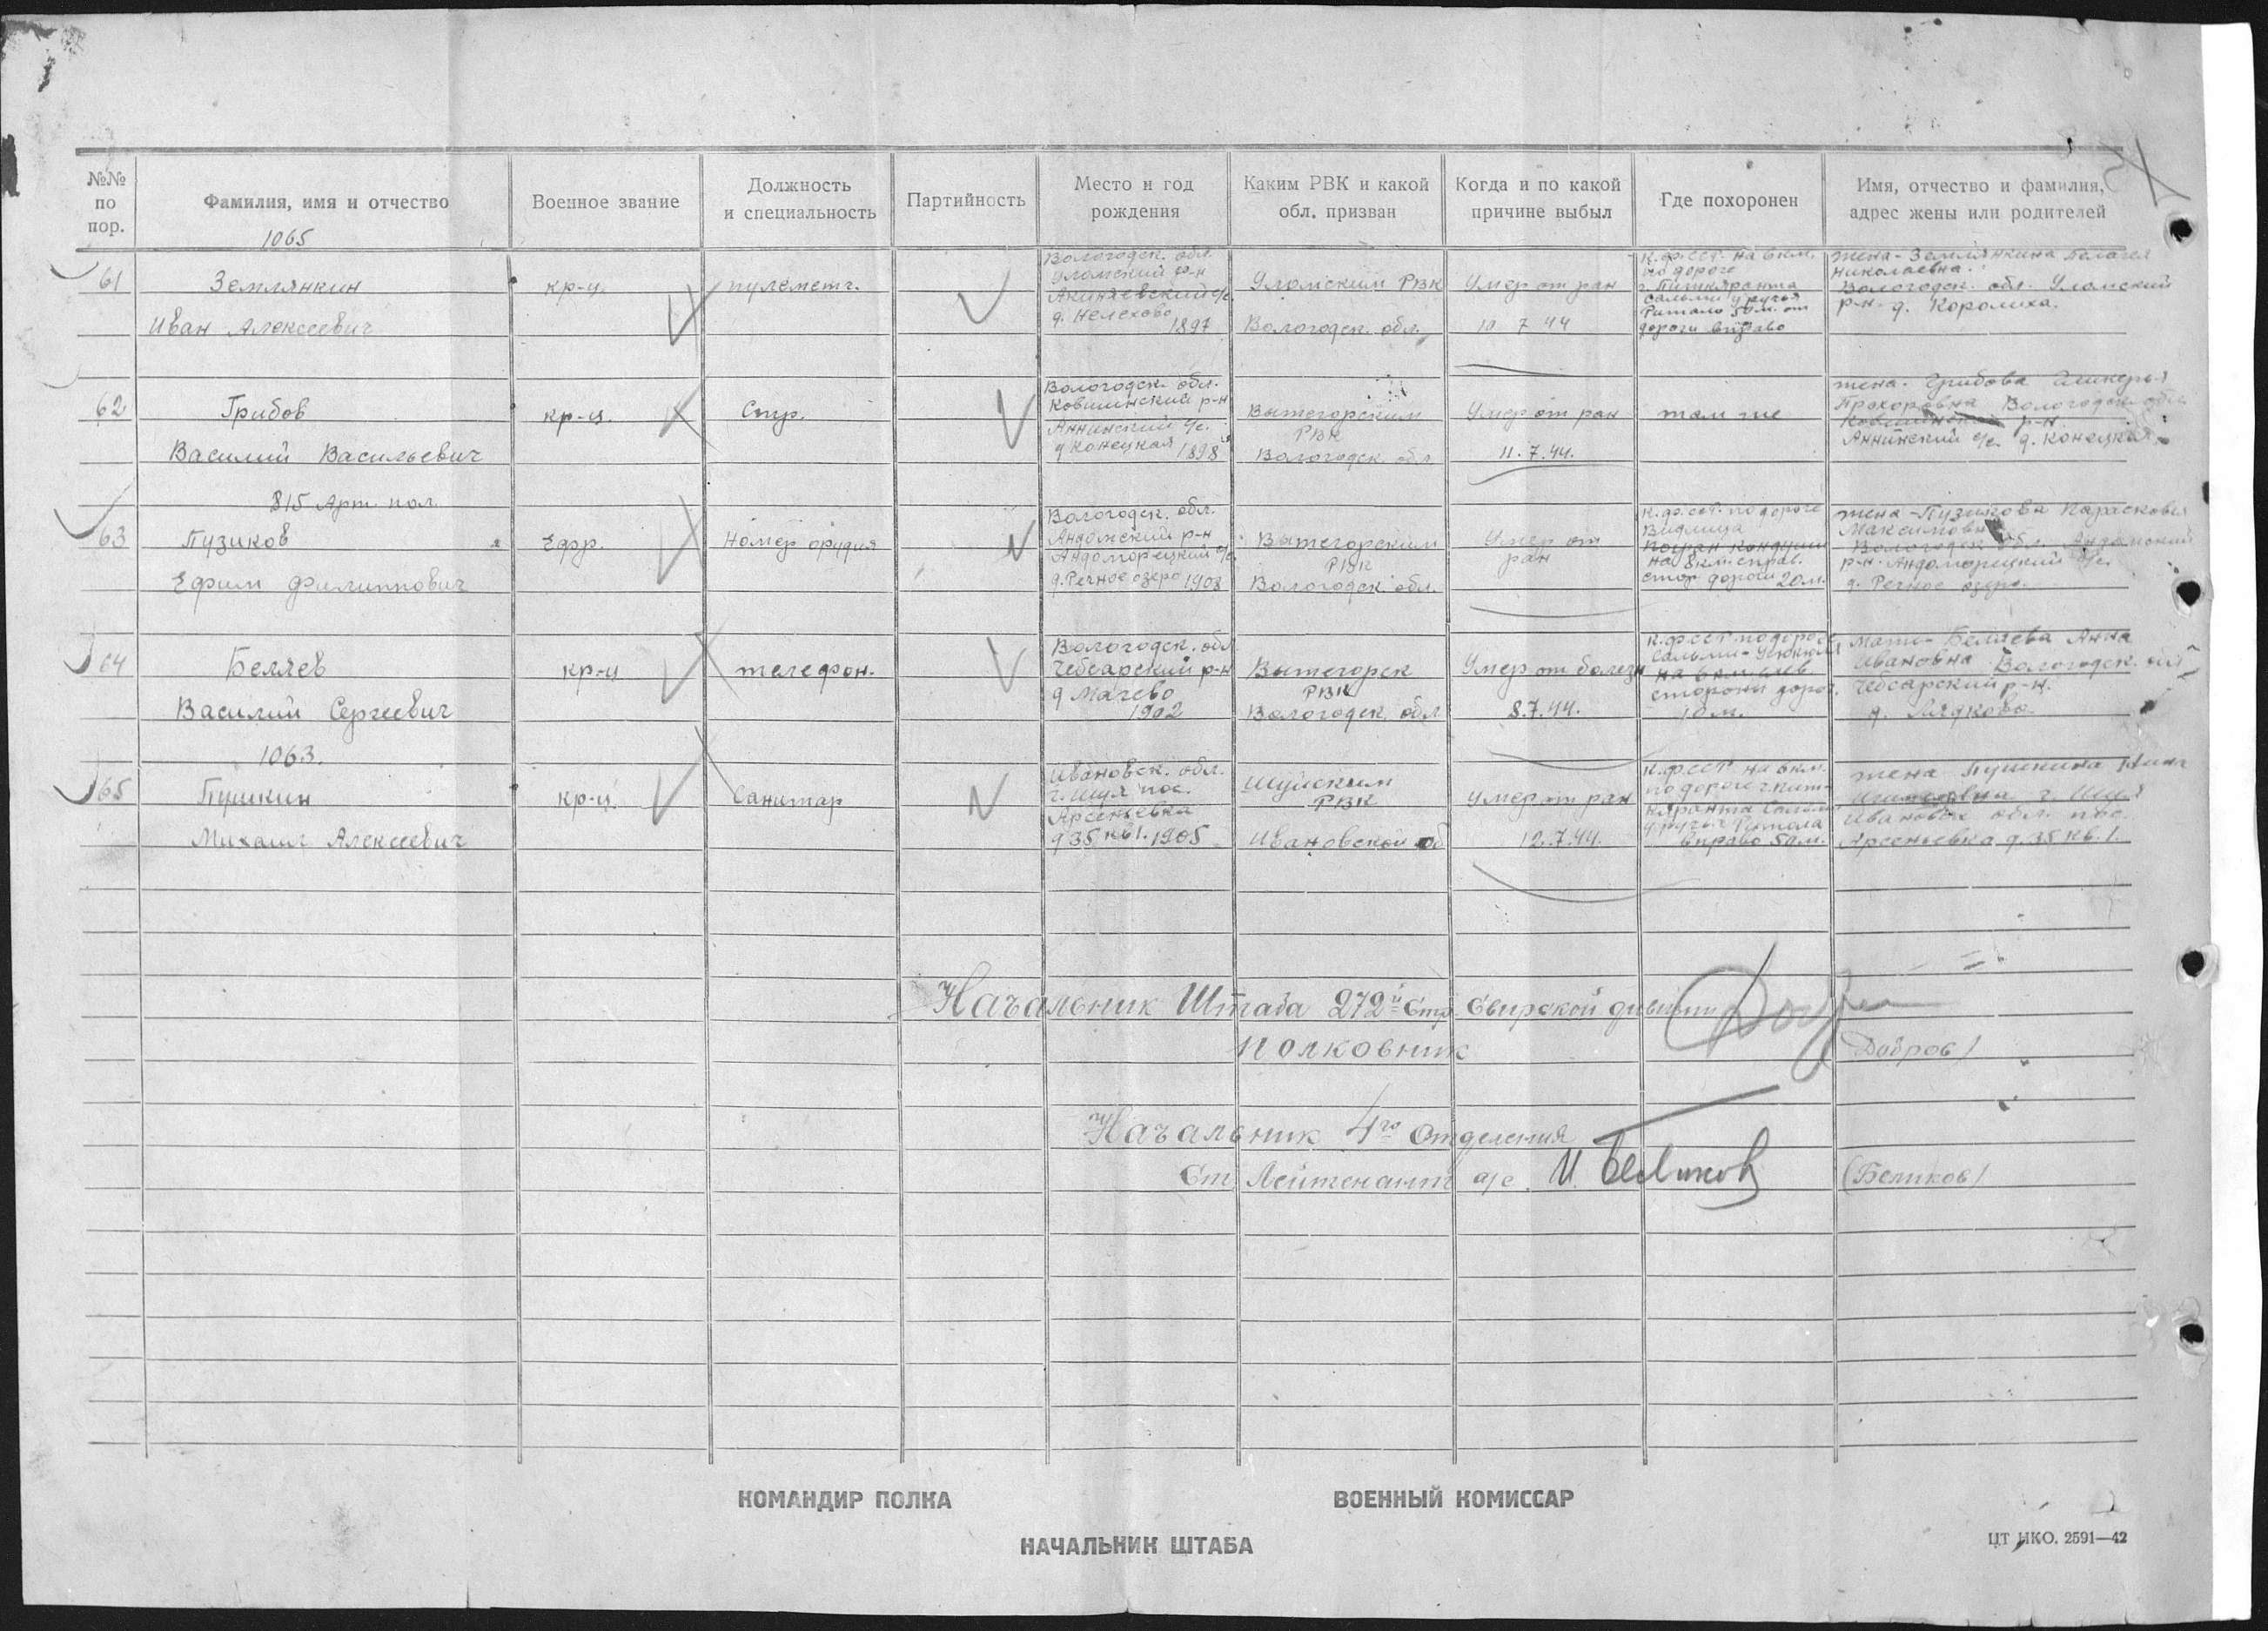 №№ по пор.
Фамилия, имя и отчество
Военное звание
Должность и специальность
Партийность
Место и год рождения
Каким РВК и какой обл. призван
Когда и по какой причине выбыл
Где похоронен
Имя, отчество и фамилия, адрес жены или родителей
1065
61
Землянкин
Иван Алексеевич
кр-ц.
пулеметч.
Вологодск. обл.
Уломский р-н
Акиняевский с/с.
д. Нелехово
1897
Уломским РВК
Вологодск. обл.
Умер от ран
10 7 44
К.Ф.ССР. на 6 км.
по дороге
г. Питкяранта
сальми у ручья
Ритало 50 м. от
дороги вправо
жена - Землянкина Пелагея
Николаевна.
Вологодск. обл. Уломский
р-н. д. Королиха.
62
Грибов
Василий Васильевич
кр-ц.
Стр.
Вологодск. обл.
Ковжинский р-н
Аннинский с/с.
д Конецкая 1898
Вытегорским
РВК
Вологодск. обл
Умер от ран
11.7.44.
там же
жена. Грибова
Прохоровна Вологодск обл
р-н.
Аннинский с/с. д. Конецкая
815 Арт. пол.
63
Пузиков
Ефим Филиппович
Ефр.
Номер орудия
Вологодск. обл.
Андомский р-н
Андоморецкий с/с
д. Речное озеро 1908
Вытегорским
РВК
Вологодск. обл.
Умер от
ран
К.Ф.ССР. по дороге
Видлица
Погран Кондуши
на 8 км. справ.
стор дороги 20 м.
жена - Пузикова Парасковья
Максимовна
Вологодск обл. Андомский
р-н. Андоморецкий с/с.
д. Речное озеро.
64
Беляев
Василий Сергеевич
кр-ц
телефон.
Вологодск. обл
Чебсарский р-н
д Мачево
1902
Вытегорск
РВК
Вологодск. обл
Умер от болезн
8.7.44.
К.Ф.ССР по дороге
Сальми -
на 6 км. лев.
стороны дорог.
10 м.
Мать - Беляева Анна
Ивановна Вологодск. обл
Чебсарский р-н.
д.
1063.
65
Пушкин
Михаил Алексеевич
кр-ц.
Санитар
Ивановск. обл.
г. Шуя пос.
Арсеньевка
д 35 кв 1. 1905
Шуйским
РВК
Ивановской об
Умер от ран
12.7.44.
К.Ф.ССР на 6 км.
по дороге г. Пит-
кяранта Сальми
у ручья Ритала
вправо 50 м.
жена Пушкина
г. Шуя
Ивановск обл. пос.
Арсеньевка д. 35 кв. 1.
Начальник Штаба 272й Стр. Свирской дивизии
Полковник
Добров/
Начальник 4го Отделения
Ст Лейтенант а/с. И. Беликов
(Беликов/
КОМАНДИР ПОЛКА
ВОЕННЫЙ КОМИССАР
НАЧАЛЬНИК ШТАБА
ЦТ НКО. 2591—42